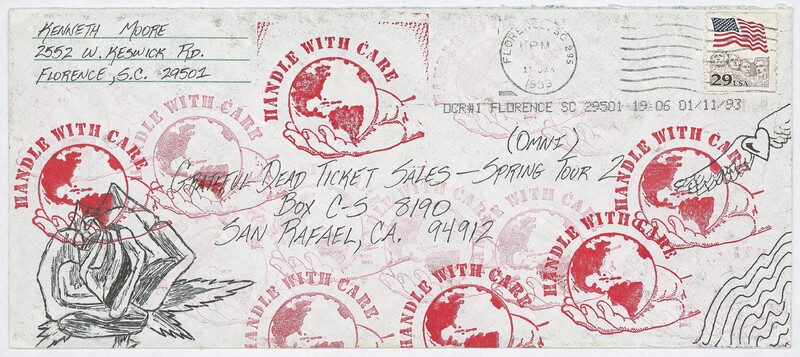 KENNETH MOORE
2552 W. KESWICK RD.
FLORENCE, S.C. 29501
HANDLE WITH CARE
FLORENCE, SC 295
PM
1993
29 USA
DCR#1 FLORENCE SC 29501 19:06 01/11/93
HANDLE WITH CARE
HANDLE WITH CARE
(OMNI)
HANDLE WITH CARE
GRATEFUL DEAD TICKET SALES — SPRING TOUR 2
BOX CS 8190
SAN RAFAEL, CA. 94912
HANDLE WITH CARE
HANDLE WITH CARE
HANDLE WITH CARE
HANDLE WITH CARE